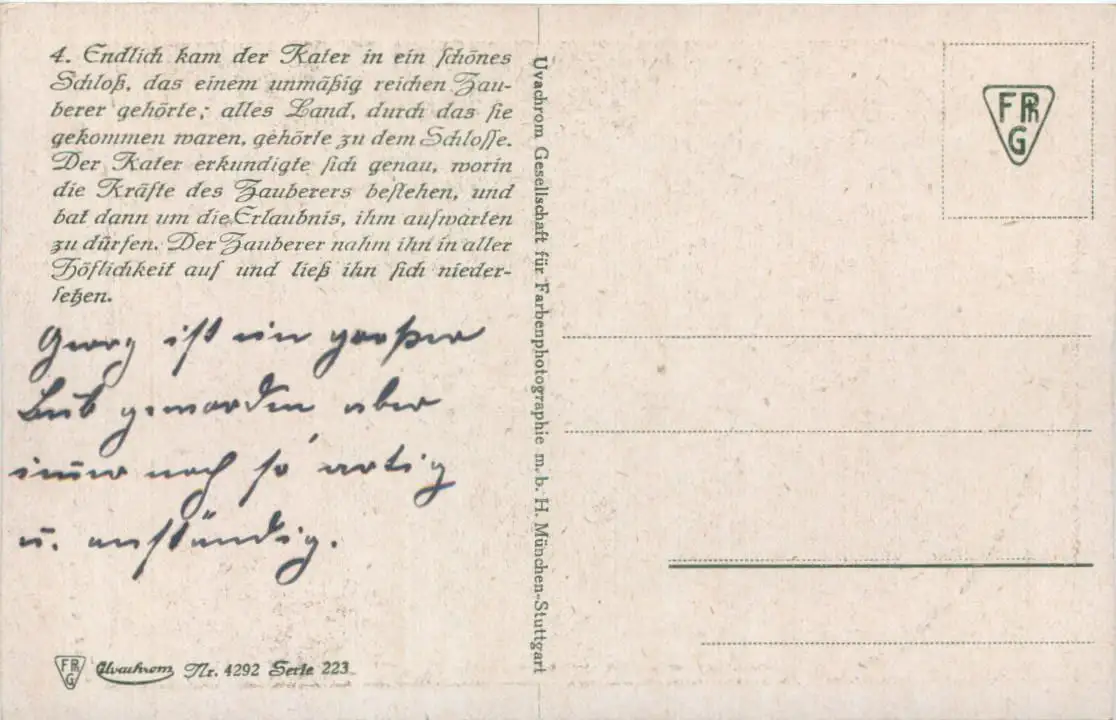 4. Endlich kam der Kater in ein schönes
Schloß, das einem unmäßig reichen Zau-
berer gehörte; alles Land, durch das sie
gekommen waren, gehörte zu dem Schlosse.
Der Kater erkundigte sich genau, worin
die Kräfte des Zauberers bestehen, und
bat dann um die Erlaubnis, ihm aufwarten
zu dürfen. Der Zauberer nahm ihn in aller
Höflichkeit auf und ließ ihn sich nieder-
setzen.
Georg ist ein großer
Bub geworden aber
im̅er noch so artig
u. anständig.
FPhG Uvachrom Nr. 4292 Serie 223
Uvachrom Gesellschaft für Farbenphotographie m. b. H. München-Stuttgart
FPh
G